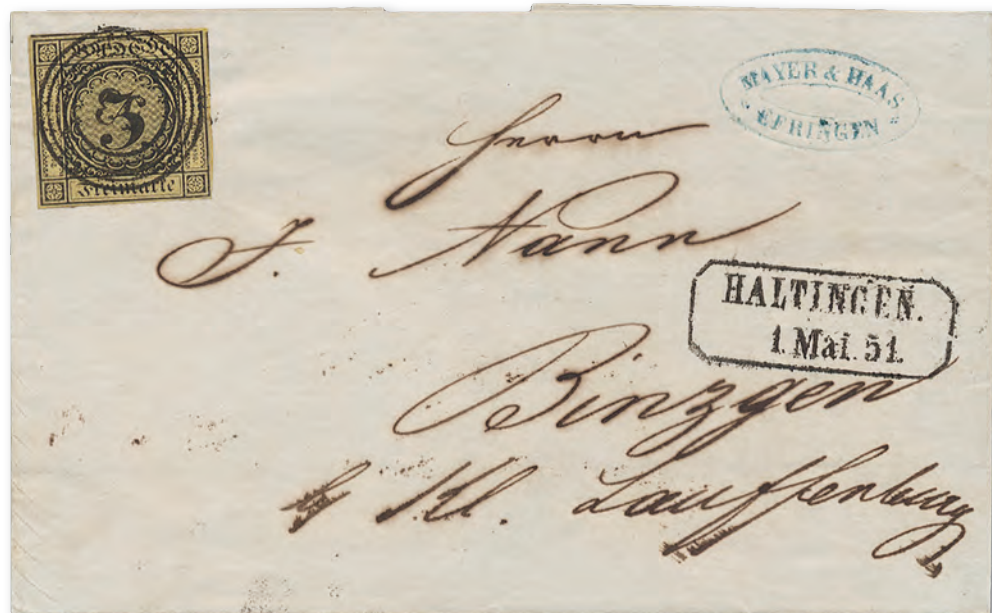 3
Freimarke
MAYER & HAAS
EFRINGEN
Herrn
J. Nann
HALTINGEN.
1. Mai. 51.
Binzgen
Kl. Lauffenburg